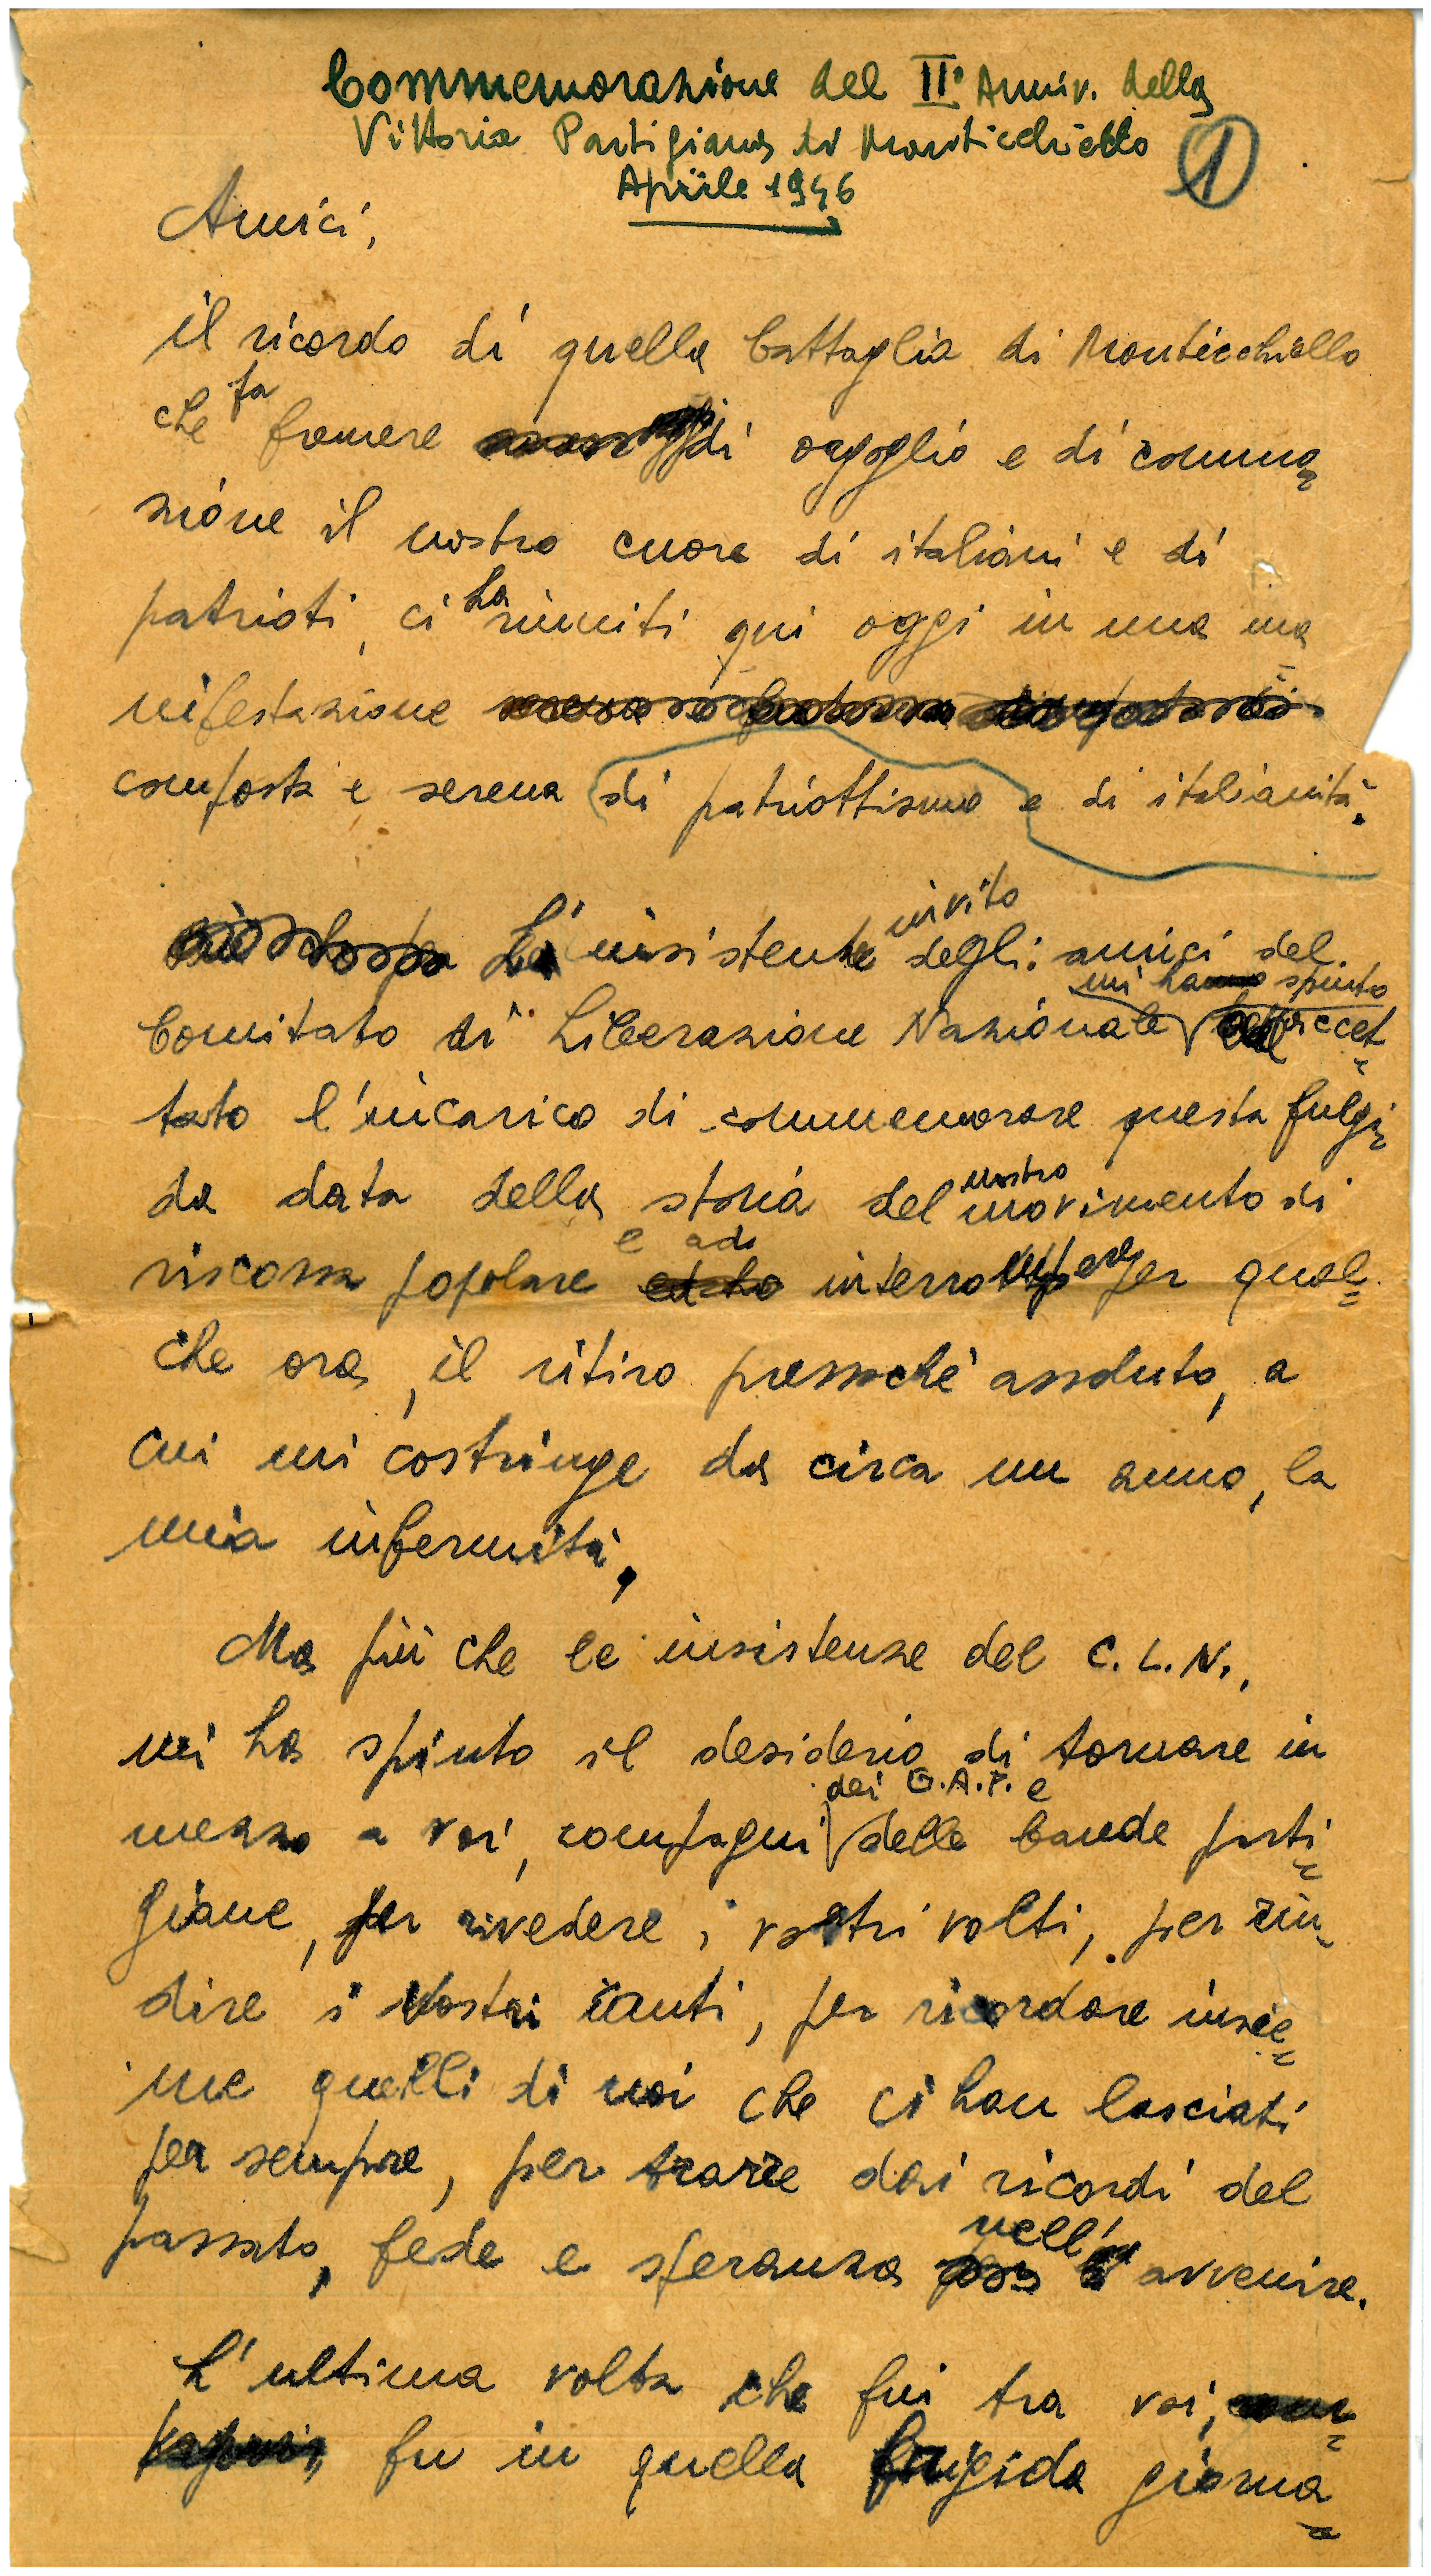 Commemorazione del II° Anniv. della
Vittoria Partigiana di Monticchiello
Aprile 1946
1
Amici,
il ricordo di quella battaglia di Monticchiello
che fa fremere di orgoglio e di commo
zione il nostro cuore di italiani e di
patrioti, ci ha riuniti qui oggi in una ma
nifestazione
composta e serena di patriottismo e di italianità.
L'insistente invito degli amici del
Comitato di Liberazione Nazionale mi ha spinto accet
tato l'incarico di commemorare questa fulgi
da data della storia del nostro movimento di
riscossa popolare e ad interrompere per qual
che ora, il ritiro pressochè assoluto, a
cui mi costringe da circa un anno, la
mia infermità.
Ma più che le insistenze del C.L.N.,
mi ha spinto il desiderio di tornare in
mezzo a voi, compagni dei G.A.P. e delle bande parti
giane, per rivedere i vostri volti, per riu
dire i vostri canti, per ricordare insie
me quelli di noi che ci han lasciati
per sempre, per trarre dai ricordi del
passato, fede e speranza nell'avvenire.
L'ultima volta che fui tra voi,
fu in quella frigida giorna